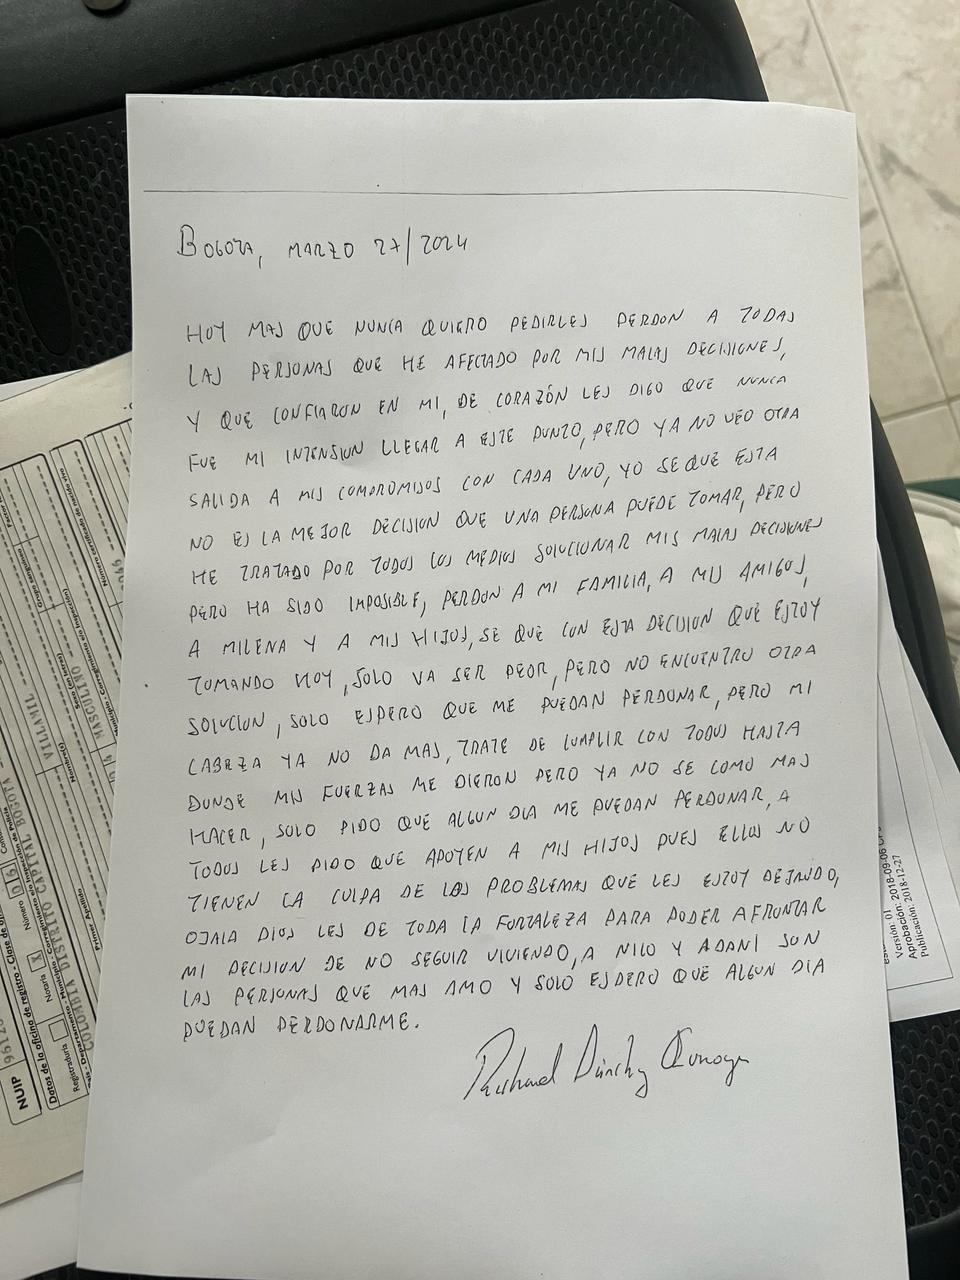 BOGOTA, MARZO 27/2024
HOY MAS QUE NUNCA QUIERO PEDIRLES PERDON A TODAS
LAS PERSONAS QUE HE AFECTADO POR MIS MALAS DECISIONES,
Y QUE CONFIARON EN MI, DE CORAZÓN LES DIGO QUE NUNCA
FUE MI INTENSION LLEGAR A ESTE PUNTO, PERO YA NO VEO OTRA
SALIDA A MIS COMPROMISOS CON CADA UNO, YO SE QUE ESTA
NO ES LA MEJOR DECISION QUE UNA PERSONA PUEDE TOMAR, PERO
HE TRATADO POR TODOS LOS MEDIOS SOLUCIONAR MIS MALAS DECISIONES
PERO HA SIDO IMPOSIBLE, PERDON A MI FAMILIA, A MIS AMIGOS,
A MILENA Y A MIS HIJOS, SE QUE CON ESTA DECISION QUE ESTOY
TOMANDO HOY, SOLO VA SER PEOR, PERO NO ENCUENTRO OTRA
SOLUCION, SOLO ESPERO QUE ME PUEDAN PERDONAR, PERO MI
CABEZA YA NO DA MAS, TRATE DE CUMPLIR CON TODOS HASTA
DONDE MIS FUERZAS ME DIERON PERO YA NO SE COMO MAS
HACER, SOLO PIDO QUE ALGUN DIA ME PUEDAN PERDONAR, A
TODOS LES PIDO QUE APOYEN A MIS HIJOS PUES ELLOS NO
TIENEN LA CULPA DE LOS PROBLEMAS QUE LES ESTOY DEJANDO,
OJALA DIOS LES DE TODA LA FORTALEZA PARA PODER AFRONTAR
MI DECISION DE NO SEGUIR VIVIENDO, A NILO Y ADANI SON
LAS PERSONAS QUE MAS AMO Y SOLO ESPERO QUE ALGUN DIA
PUEDAN PERDONARME.
NUIP
Datos de la oficina de registro - Clase de
Registraduría
Notaría X
Número
COLOMBIA DISTRITO CAPITAL BOGOTA
Primer Apellido
VILLAMIL
Nombre(s)
MASCULINO
Sexo (en letras)
Grupo sanguíneo
Versión: 01
Aprobación: 2018-12-27
Publicación: